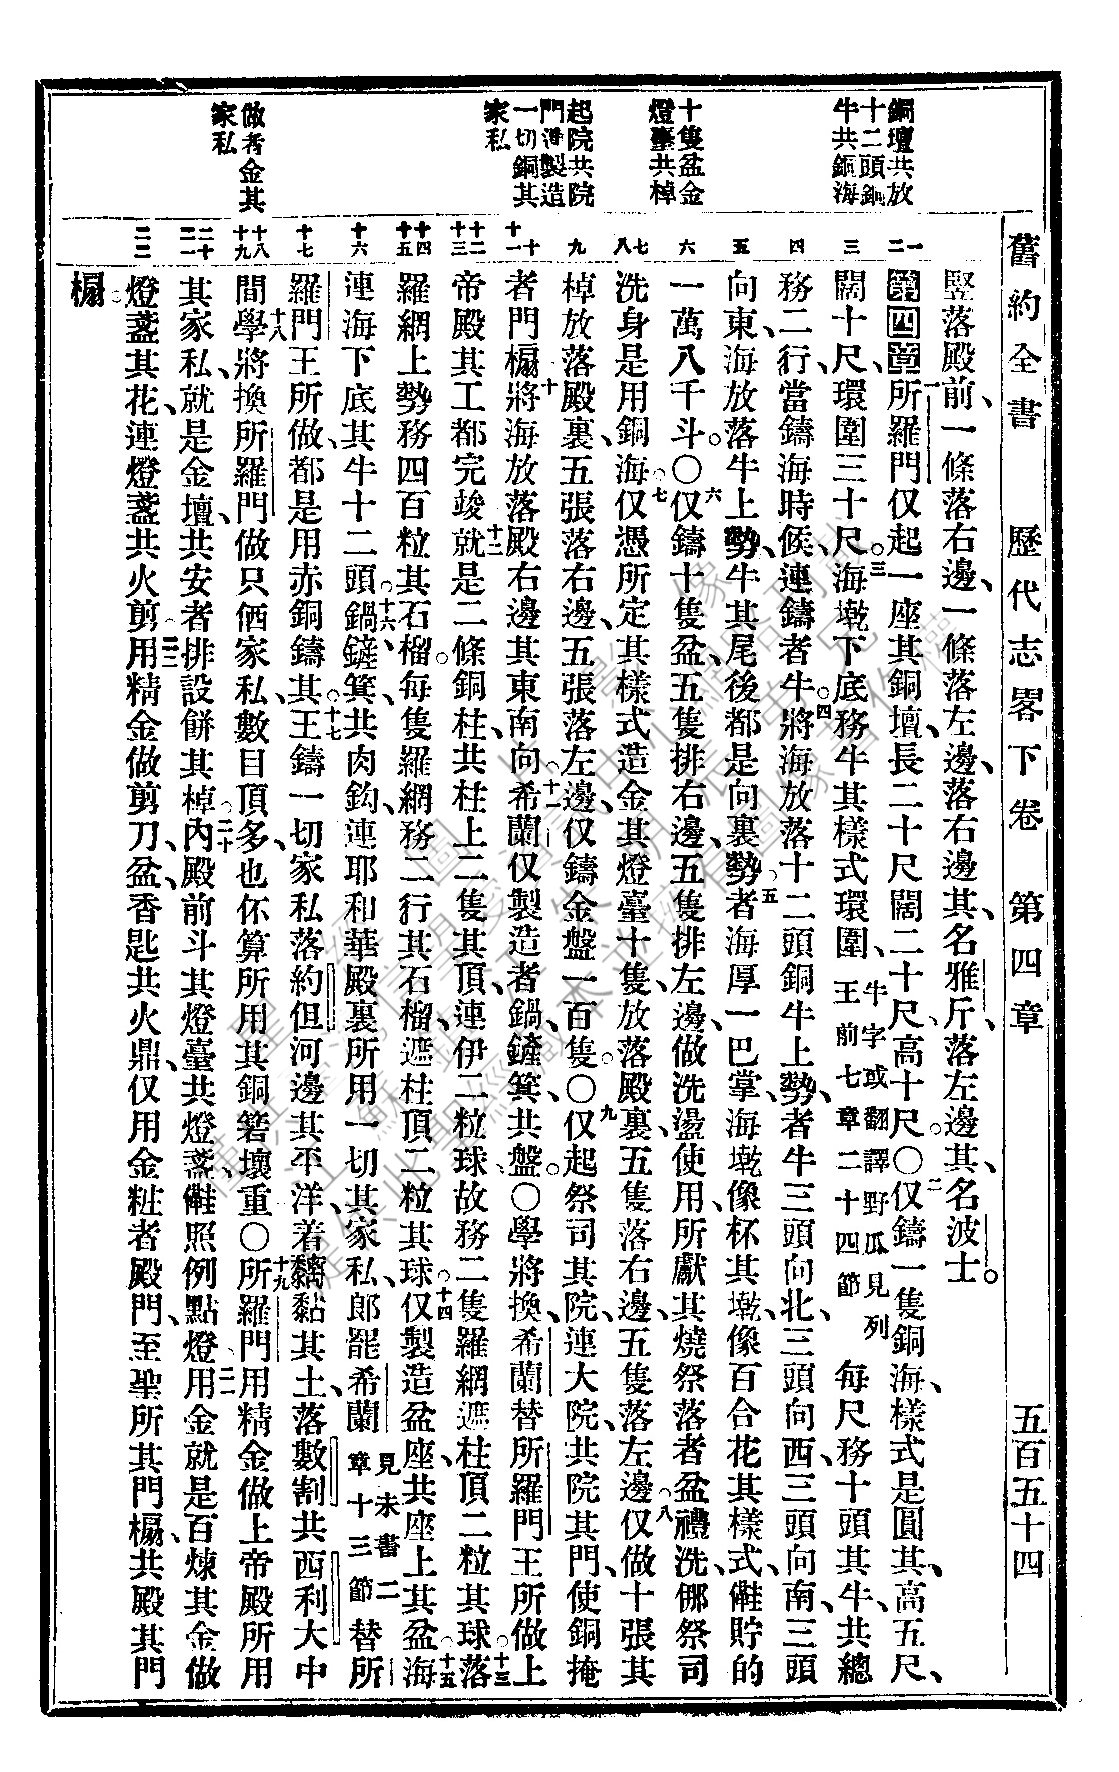 舊約全書 歷代志畧下卷 第四章 五百五十四
銅壇共放
十二頭銅
牛共銅海
十隻盆金
燈臺共棹
起院共院
門並製造
一切銅其
家私
做者金其
家私
一 二 三 四 五 六 七 八 九 十 十一 十二 十三 十四 十五 十六 十七 十八 十九 二十 二一 二二
豎落殿前、一條落右邊、一條落左邊、落右邊其、名雅斤、落左邊其、名波士。
第四章 一所羅門仅起一座其銅壇、長二十尺闊二十尺高十尺。〇二仅鑄一隻銅海、樣式是圓其、高五尺、
闊十尺、環圍三十尺。三海墘下底務牛其樣式環圍、牛字或翻譯野瓜見列王前七章二十四節 每尺務十頭其牛、共總
務二行、當鑄海時候、連鑄者牛。四將海放落十二頭銅牛上勢、者牛三頭向北、三頭向西、三頭向南、三頭
向東、海放落牛上勢、牛其尾後都是向裏勢。五者海厚一巴掌、海墘像杯其墘、像百合花其樣式、㑚貯的
一萬八千斗。〇六仅鑄十隻盆、五隻排右邊、五隻排左邊、做洗盪使用、所獻其燒祭落者盆禮洗、㑚祭司
洗身是用銅海。七仅憑所定其樣式造金其燈臺十隻、放落殿裏、五隻落右邊、五隻落左邊。八仅做十張其
棹放落殿裏、五張落右邊、五張落左邊、仅鑄金盤一百隻。〇九仅起祭司其院、連大院、共院其門、使銅掩
者門榻。十將海放落殿右邊其東南向。十一希蘭仅製造者鍋、鏟、箕、共盤。〇學將換希蘭替所羅門王所做上
帝殿其工都完竣、十二就是二條銅柱、共柱上二隻其頂、連伊二粒球、故務二隻羅網遮柱頂二粒其球。十三落
羅網上勢務四百粒其石榴、每隻羅網務二行其石榴、遮柱頂二粒其球。十四仅製造盆座、共座上其盆。十五海
連海下底其牛十二頭。十六鍋、鏟、箕、共肉鈎、連耶和華殿裏所用一切其家私、郎罷希蘭見未書二章十三節替所
羅門王所做、都是用赤銅鑄其。十七王鑄一切家私落約但河邊其平洋、着黐黏其土、落數割共西利大中
間。十八學將換所羅門做只俩家私、數目頂多、也伓算所用其銅箬壞重。〇十九所羅門用精金做上帝殿所用
其家私、就是金壇、共安者排設餅其棹。二十內殿前斗其燈臺共燈盞、㑚照例點燈、用金就是百煉其金做。二一
燈盞其花、連燈盞共火剪。二二用精金做剪刀、盆、香匙、共火鼎、仅用金粧者殿門、至聖所其門榻、共殿其門
榻。